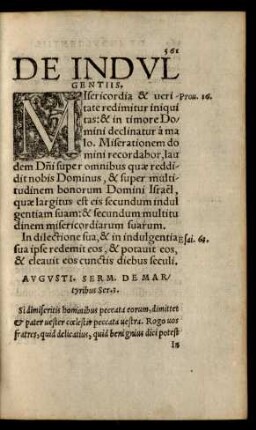 561
DE INDVL
GENTIIS.
MIsericordia & ueri Prou. 16.
tate redimitur iniqui
tas: & in timore Do/
mini declinatur à ma
lo. Miserationem do
mini recordabor, lau
dem Dñi super omnibus quæ reddi
dit nobis Dominus, & super multi
tudinem bonorum Domini Israël,
quæ largitus est eis secundum indul
gentiam suam: & secundum multitu
dinem misericordiarum suarum.
In dilectione sua, & in indulgentia Esai. 63.
sua ipse redemit eos, & potauit eos,
& eleauit eos cunctis diebus seculi.
AVGVSTI. SERM. DE MAR/
tyribus Ser. 2.
Si dimiseritis hominibus peccata eorum, dimittet
& pater uester cœlestis peccata uestra. Rogo uos
fratres, quid delicatius, quid benignius dici potest
In